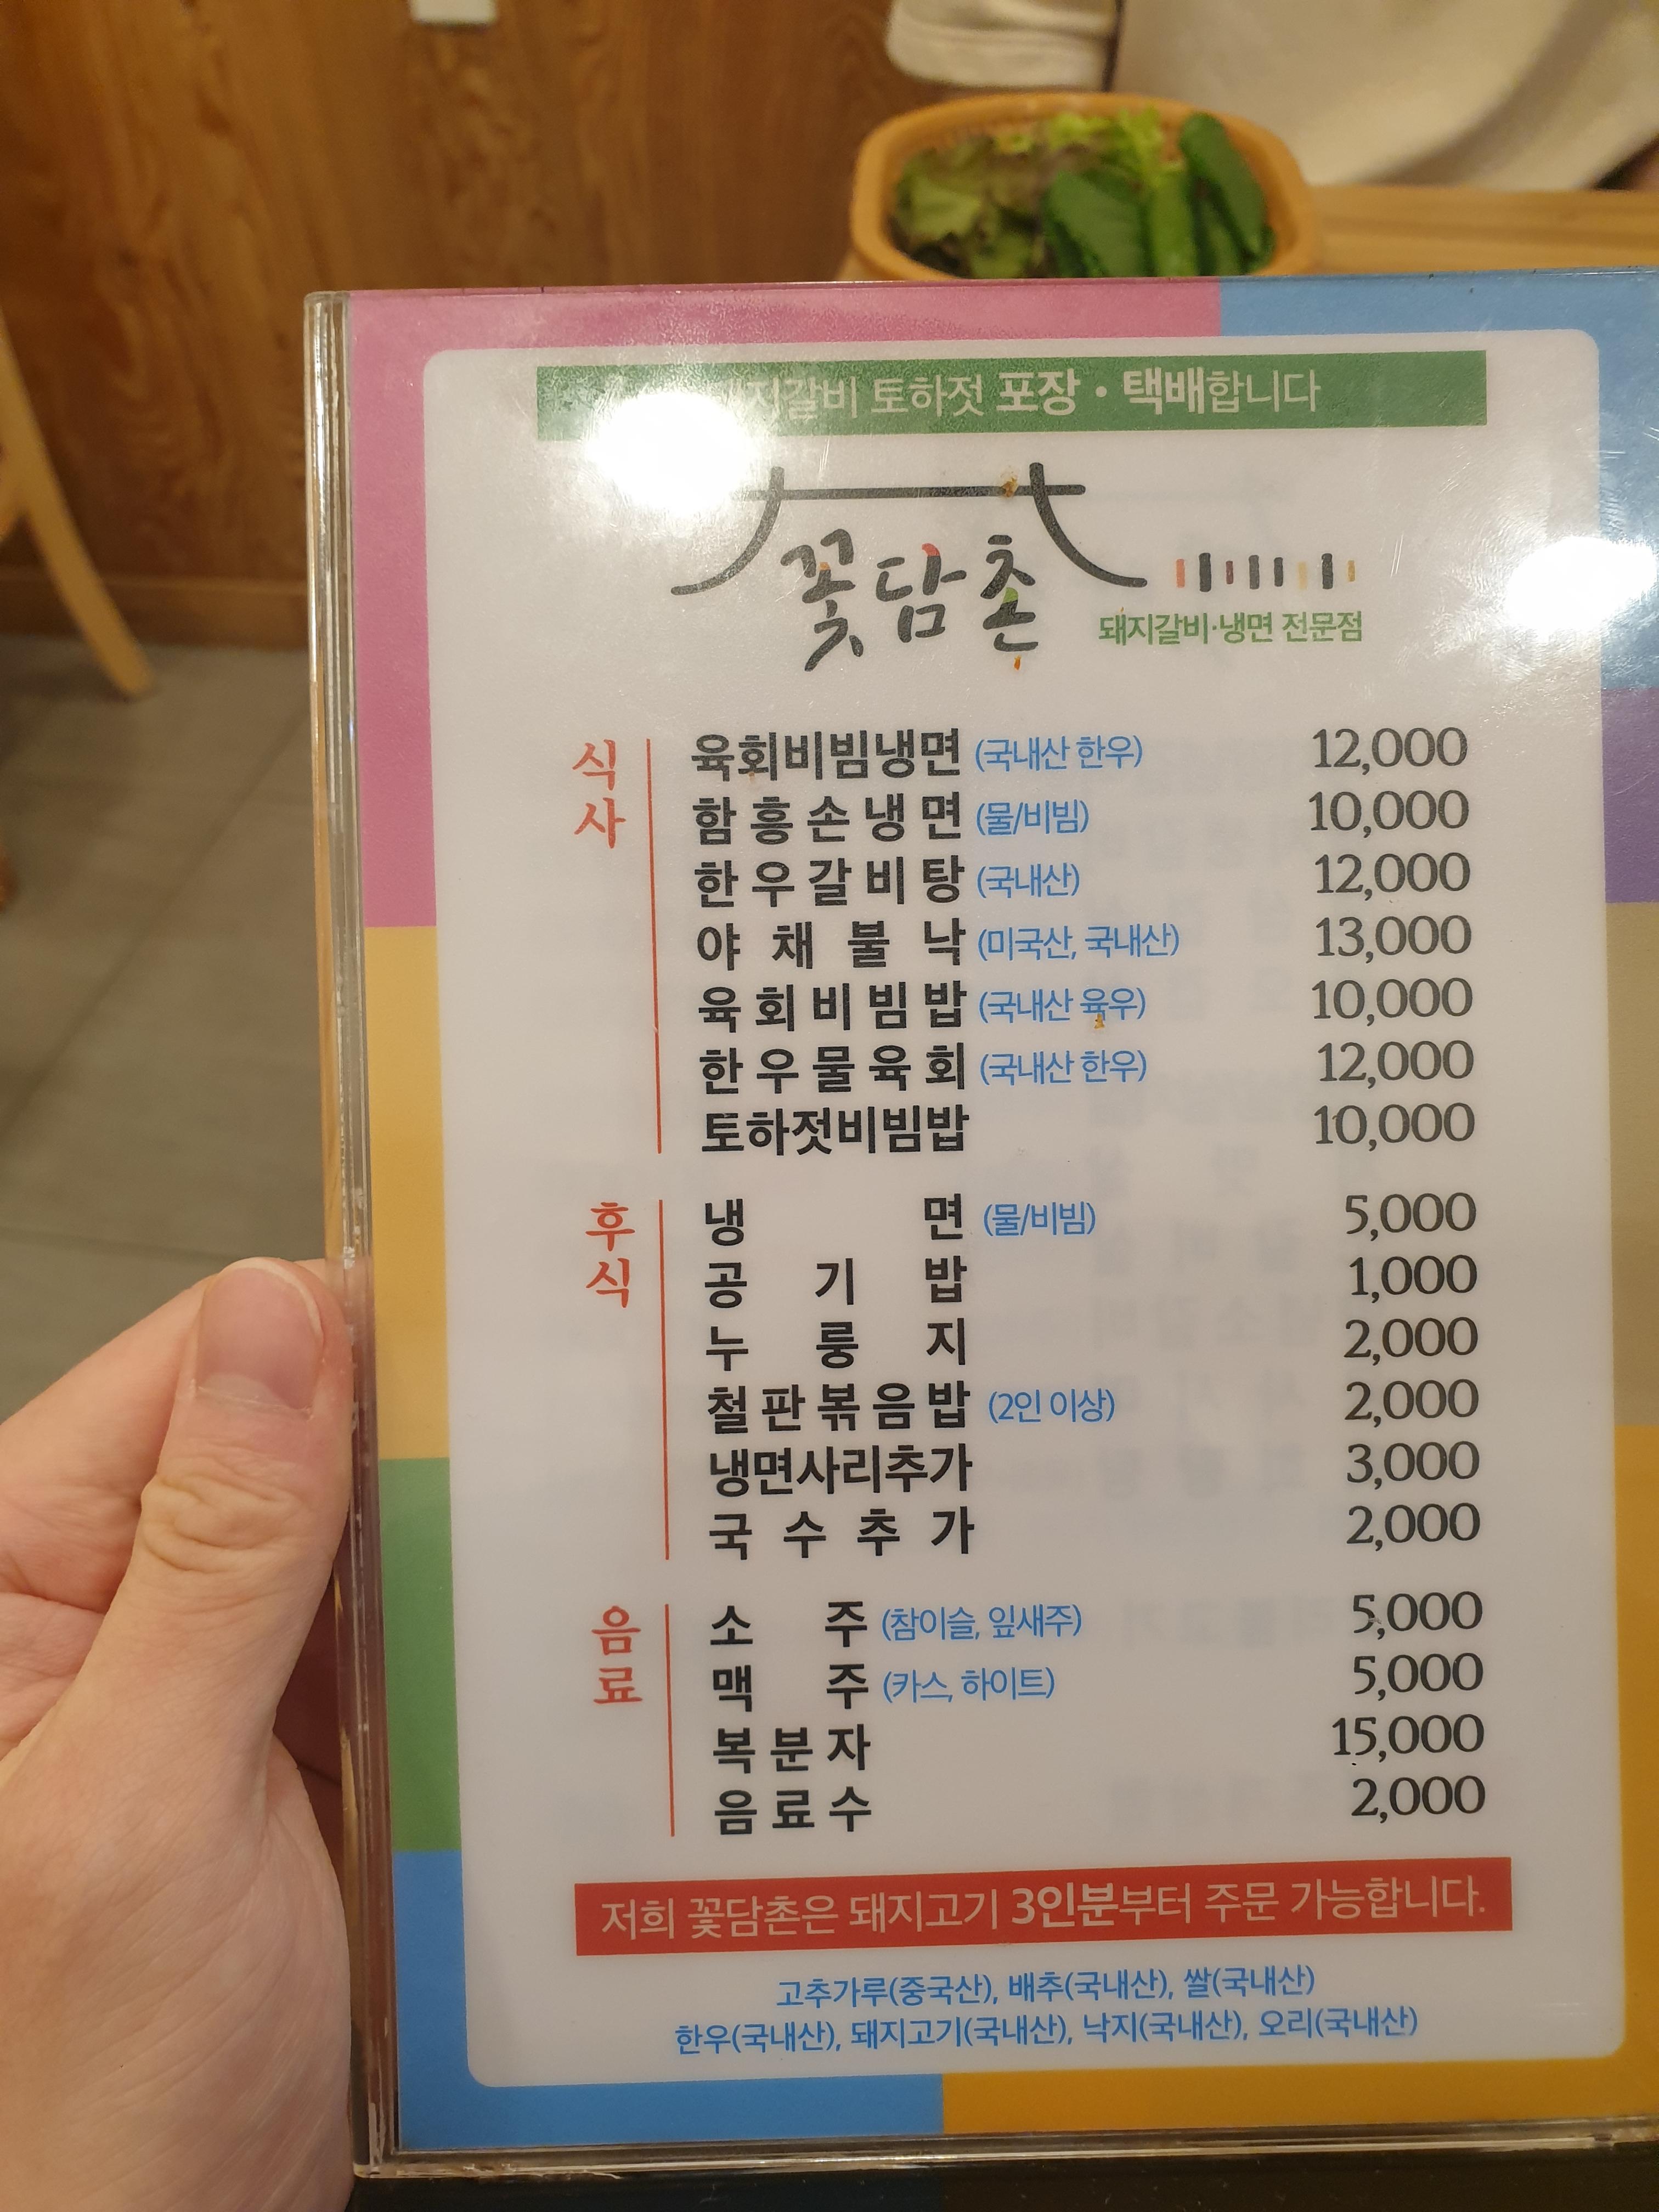 돼지갈비 토하젓 포장·택배합니다
꽃담촌
돼지갈비·냉면 전문점
식사
육회비빔냉면 (국내산 한우) 12,000
함흥손냉면 (물/비빔) 10,000
한우갈비탕 (국내산) 12,000
야채불낙 (미국산, 국내산) 13,000
육회비빔밥 (국내산 육우) 10,000
한우물육회 (국내산 한우) 12,000
토하젓비빔밥 10,000
후식
냉면 (물/비빔) 5,000
공기밥 1,000
누룽지 2,000
철판볶음밥 (2인 이상) 2,000
냉면사리추가 3,000
국수추가 2,000
음료
소주 (참이슬, 잎새주) 5,000
맥주 (카스, 하이트) 5,000
복분자 15,000
음료수 2,000
저희 꽃담촌은 돼지고기 3인분부터 주문 가능합니다.
고추가루(중국산), 배추(국내산), 쌀(국내산)
한우(국내산), 돼지고기(국내산), 낙지(국내산), 오리(국내산)